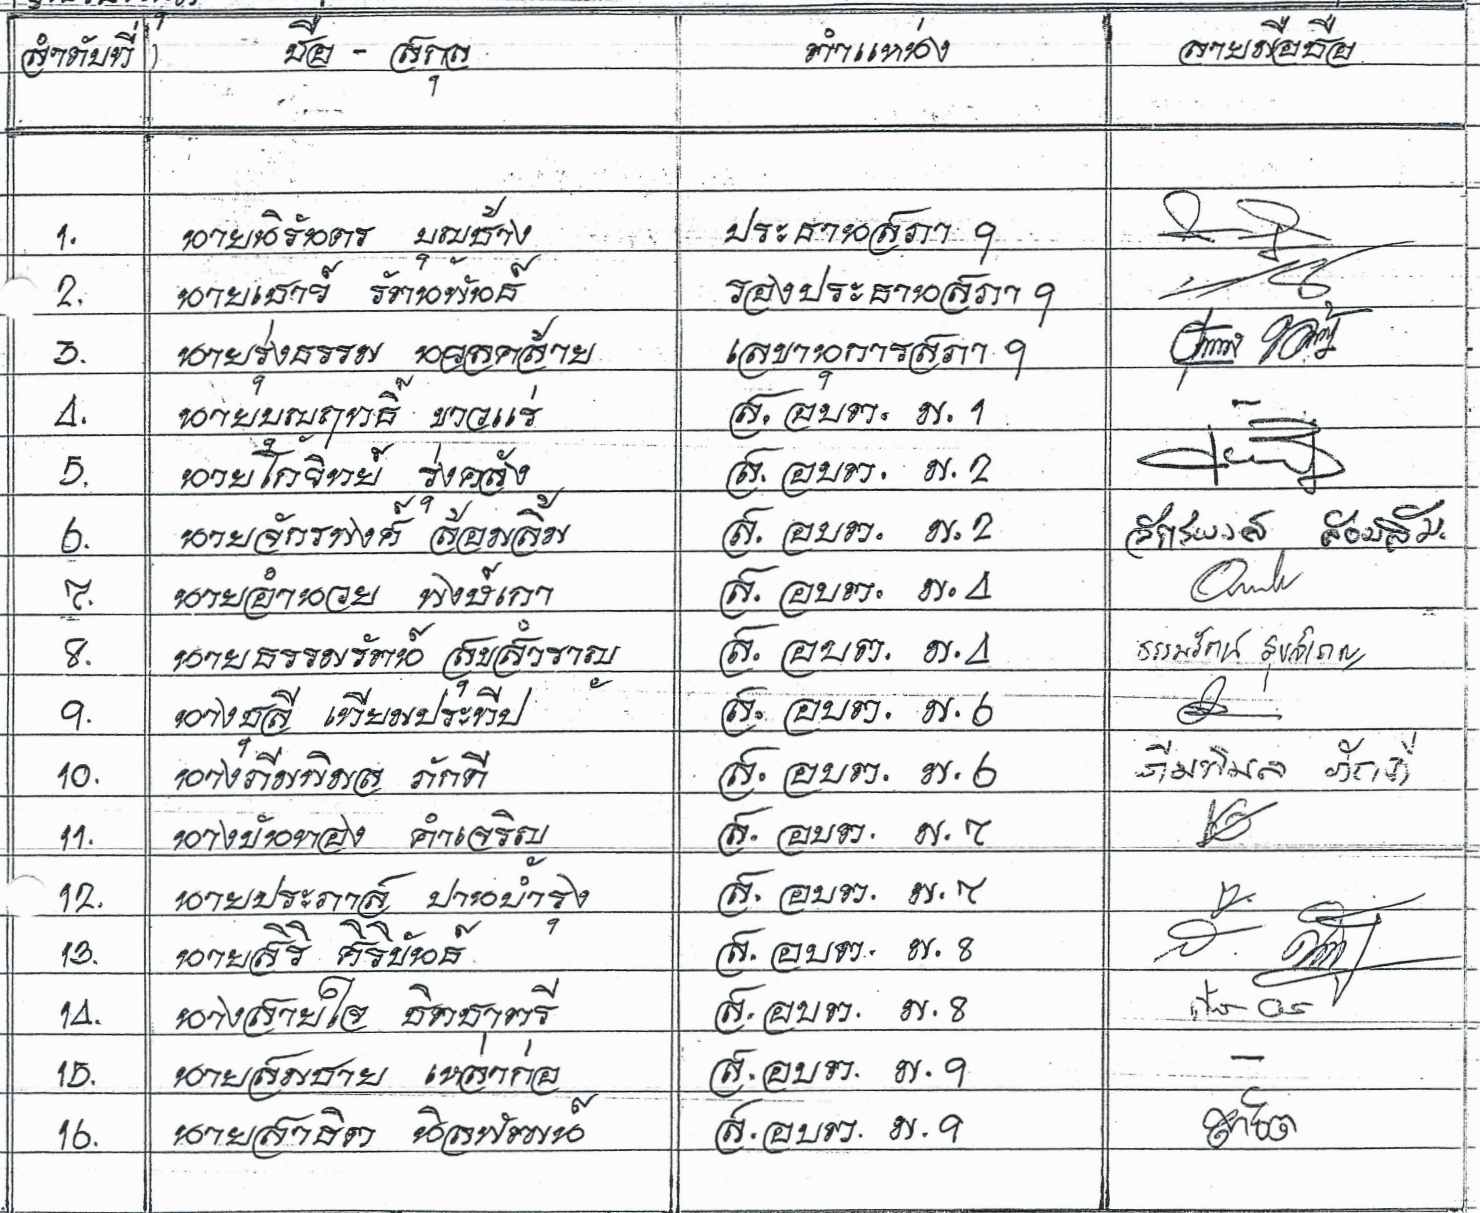 ลำดับที่ ชื่อ - สกุล ตำแหน่ง ลายมือชื่อ
1. นายนิรันดร บุญช้าง ประธานสภา ฯ
2. นายเชาว์ รัตนพันธ์ รองประธานสภา ฯ
3. นายรุ่งธรรม นวลคล้าย เลขานุการสภา ฯ
4. นายบุณฤทธิ์ ขาวแร่ ส. อบต. ม. 1
5. นายโกวิทย์ รุ่งคลัง ส. อบต. ม. 2
6. นายจักรพงศ์ ล้อมลิ้ม ส. อบต. ม. 2 จักรพงศ์ ล้อมลิ้ม
7. นายอำนวย พงษ์เภา ส. อบต. ม. 4
8. นายธรรมรัตน์ สุขสำราญ ส. อบต. ม. 4 ธรรมรัตน์ สุขสำราญ
9. นางชุลี เทียมประทีป ส. อบต. ม. 6
10. นางภีมพิมล ภักดี ส. อบต. ม. 6 ภีมพิมล ภักดี
11. นางบันทอง คำเจริญ ส. อบต. ม. 7
12. นายประภาส ปานบำรุง ส. อบต. ม. 7
13. นายสิริ ศิริขันธ์ ส. อบต. ม. 8
14. นางสายใจ ส. อบต. ม. 8
15. นายสมชาย เหล่าก่อ ส. อบต. ม. 9 -
16. นายสาธิต นิลพัฒน์ ส. อบต. ม. 9 สาธิต